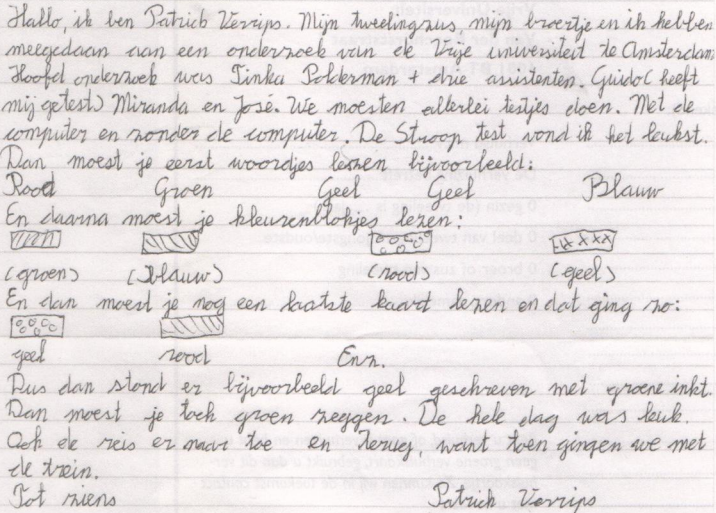 Hallo, ik ben Patrick Verrips. Mijn tweelingzus, mijn broertje en ik hebben
meegedaan aan een onderzoek van de Vrije universiteit te Amsterdam
Hoofd onderzoek was Tinka Polderman + drie assistenten. Guido( heeft
mij getest) Miranda en José. We moesten allerlei testjes doen. Met de
computer en zonder de computer. De Stroop test vond ik het leukst.
Dan moest je eerst woordjes lezen bijvoorbeeld:
Rood Groen Geel Geel Blauw
En daarna moest je kleurenblokjes lezen:
(groen) (blauw) (rood) (geel)
En dan moest je nog een laatste kaart lezen en dat ging zo:
geel rood Enz.
Dus dan stond er bijvoorbeeld geel geschreven met groene inkt.
Dan moest je toch groen zeggen. De hele dag was leuk.
Ook de reis er naar toe en terug, want toen gingen we met
de trein.
Tot ziens Patrick Verrips